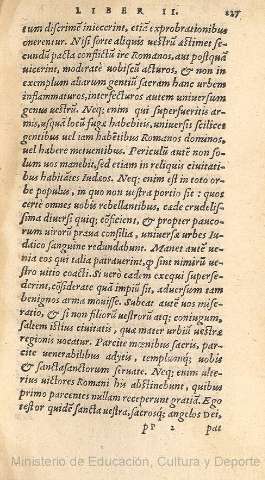 LIBER II. 227
eum discrimē iniecerint, etiā exprobrationibus
onerentur. Nisi forte aliquis uestrū æstimet se-
cundū pacta conflictū ire Romanos, aut postquā
uicerint, moderate uobiscū acturos, & non in
exemplum aliarum gentiū sacram hanc urbem
inflammaturos, interfecturos autem uniuersum
genus uestrū. Neq; enim qui superfueritis ar-
mis, usquā locū fugæ habebitis, uniuersis scilicet
gentibus uel iam habētibus Romanos dominos,
uel habere metuentibus. Periculū autē non so-
lum uos manebit, sed etiam in reliquis ciuitati-
bus habitātes Iudæos. Neq; enim est in toto or-
be populus, in quo non uestra portio sit: quos
certe omnes uobis rebellantibus, cæde crudelis-
sima diuersi quiq; cōficient, & propter pauco-
rum uirorū praua consilia, uniuersæ urbes Iu-
daico sanguine redundabunt. Manet autē ue-
nia eos qui talia patrauerint, ꝙ sint nimirū ue-
stro uitio coacti. Si uerò eadem exequi superse-
derint, cōsiderate quā impiū sit, aduersum tam
benignos arma mouisse. Subeat autē uos mise-
ratio, & si non filiorū uestrorū atq; coniugum,
saltem istius ciuitatis, quæ mater urbiū uestræ
regionis uocatur. Parcite mœnibus sacris, par-
cite uenerabilibus adytis, templumq; uobis
& sanctasanctorum seruate. Neq; enim ulte-
rius uictores Romani his abstinebunt, quibus
primo parcentes nullam receperunt gratiā. Ego
testor quidē sancta uestra, sacrosq; angelos Dei,
pP 2 pat
Ministerio de Educación, Cultura y Deporte